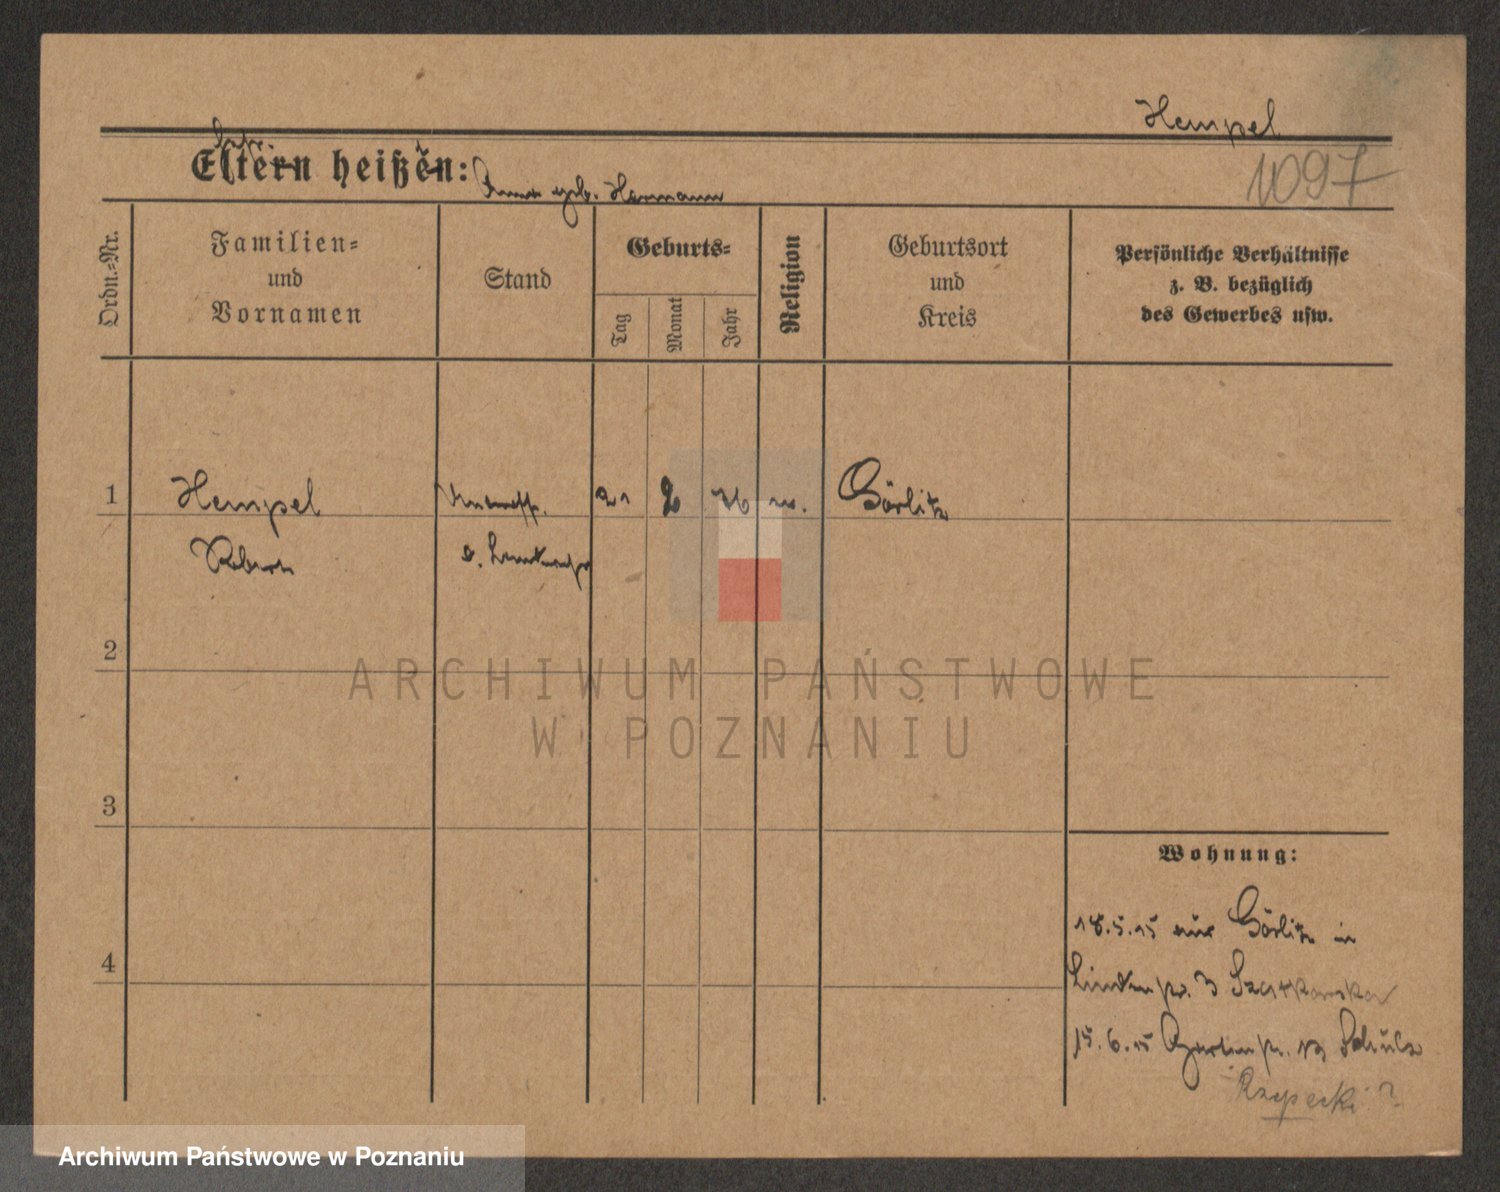 Hempel
1097
Eltern heißen:
geb. Hermann
Ordn.-Nr.
Familien-
und
Vornamen
Stand
Geburts-
Tag
Monat
Jahr
Religion
Geburtsort
und
Kreis
Persönliche Verhältnisse
z. B. bezüglich
des Gewerbes usw.
1
Hempel
21
2
76
Görlitz
Robert
2
ARCHIWUM PAŃSTWOWE
W POZNANIU
3
Wohnung:
18.5.15 aus Görlitz in
4
Lindenstr. 3 Szatkowska
15.6.15 Gartenstr. 13 Schulz
Rzepecki ?
Archiwum Państwowe w Poznaniu